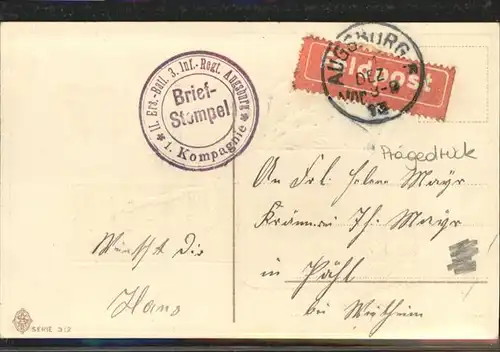 * II. Ers.-Batl. 3. Inf.-Regt. Augsburg *
Brief-
Stempel
1. Kompagnie
Feldpost
AUGSBURG
DEZ
Prägedruck
An Frl Helene Mayr
Krämerei Th. Mayr
in Pähl
bei Weilheim
Wünscht Dir
Hans
SERIE 312